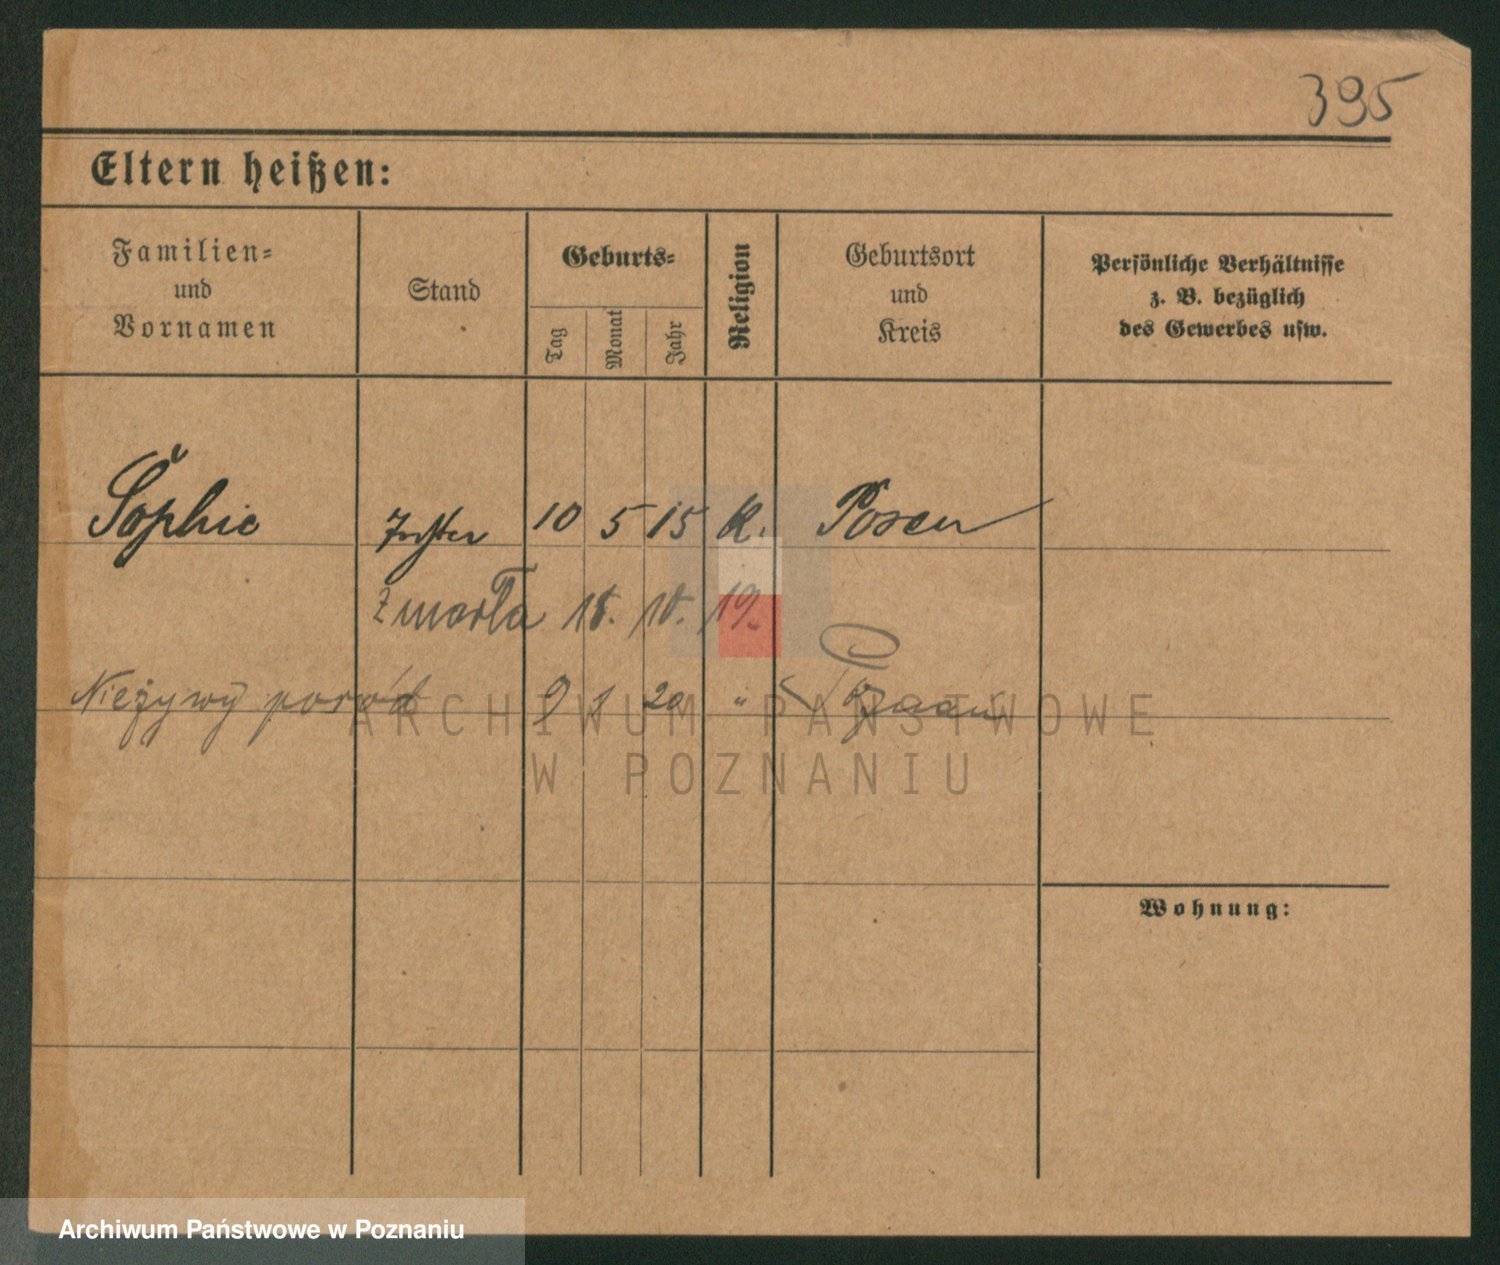 395
Eltern heißen:
Familien- und Vornamen
Stand
Geburts-
Tag
Monat
Jahr
Religion
Geburtsort und Kreis
Persönliche Verhältnisse z. B. bezüglich des Gewerbes usw.
Sophie Tochter 10 5 15 K. Posen
Zmarła 18. 10. 19.
Nieżywy poród 9 1 20 " Poznań
ARCHIWUM PAŃSTWOWE
W POZNANIU
Wohnung:
Archiwum Państwowe w Poznaniu